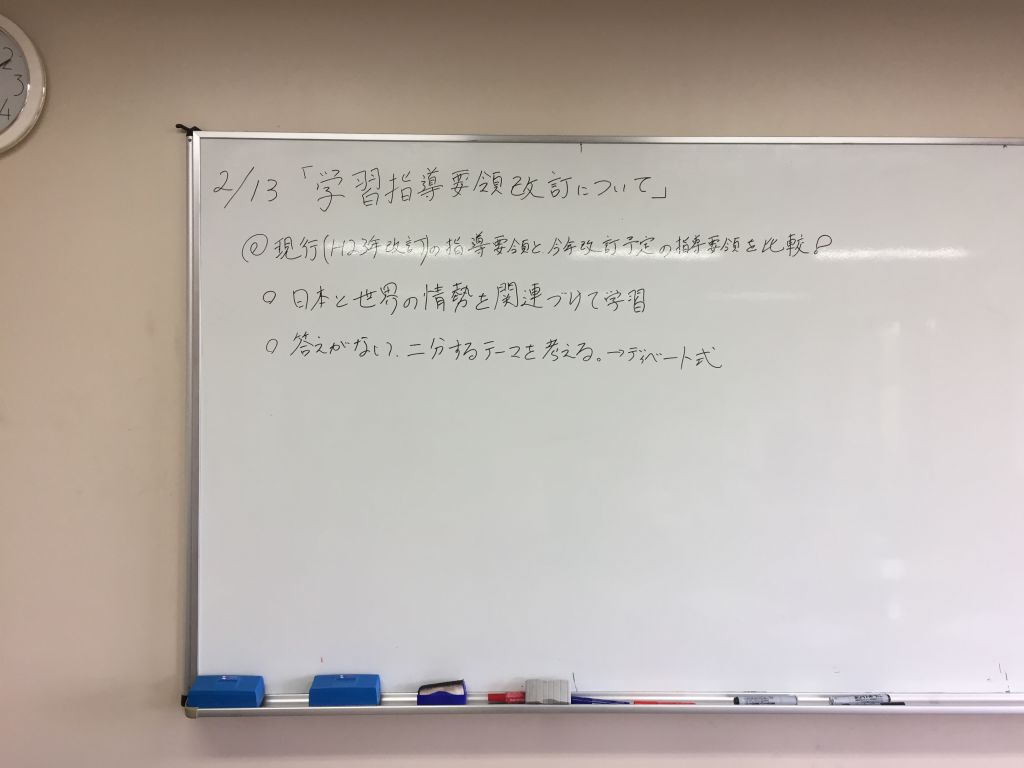 2
3
4
2/13 「学習指導要領改訂について」
◎ 現行(H23年改訂)の指導要領と、今年改訂予定の指導要領を比較。
○ 日本と世界の情勢を関連づけて学習
○ 答えがない、二分するテーマを考える。→ディベート式